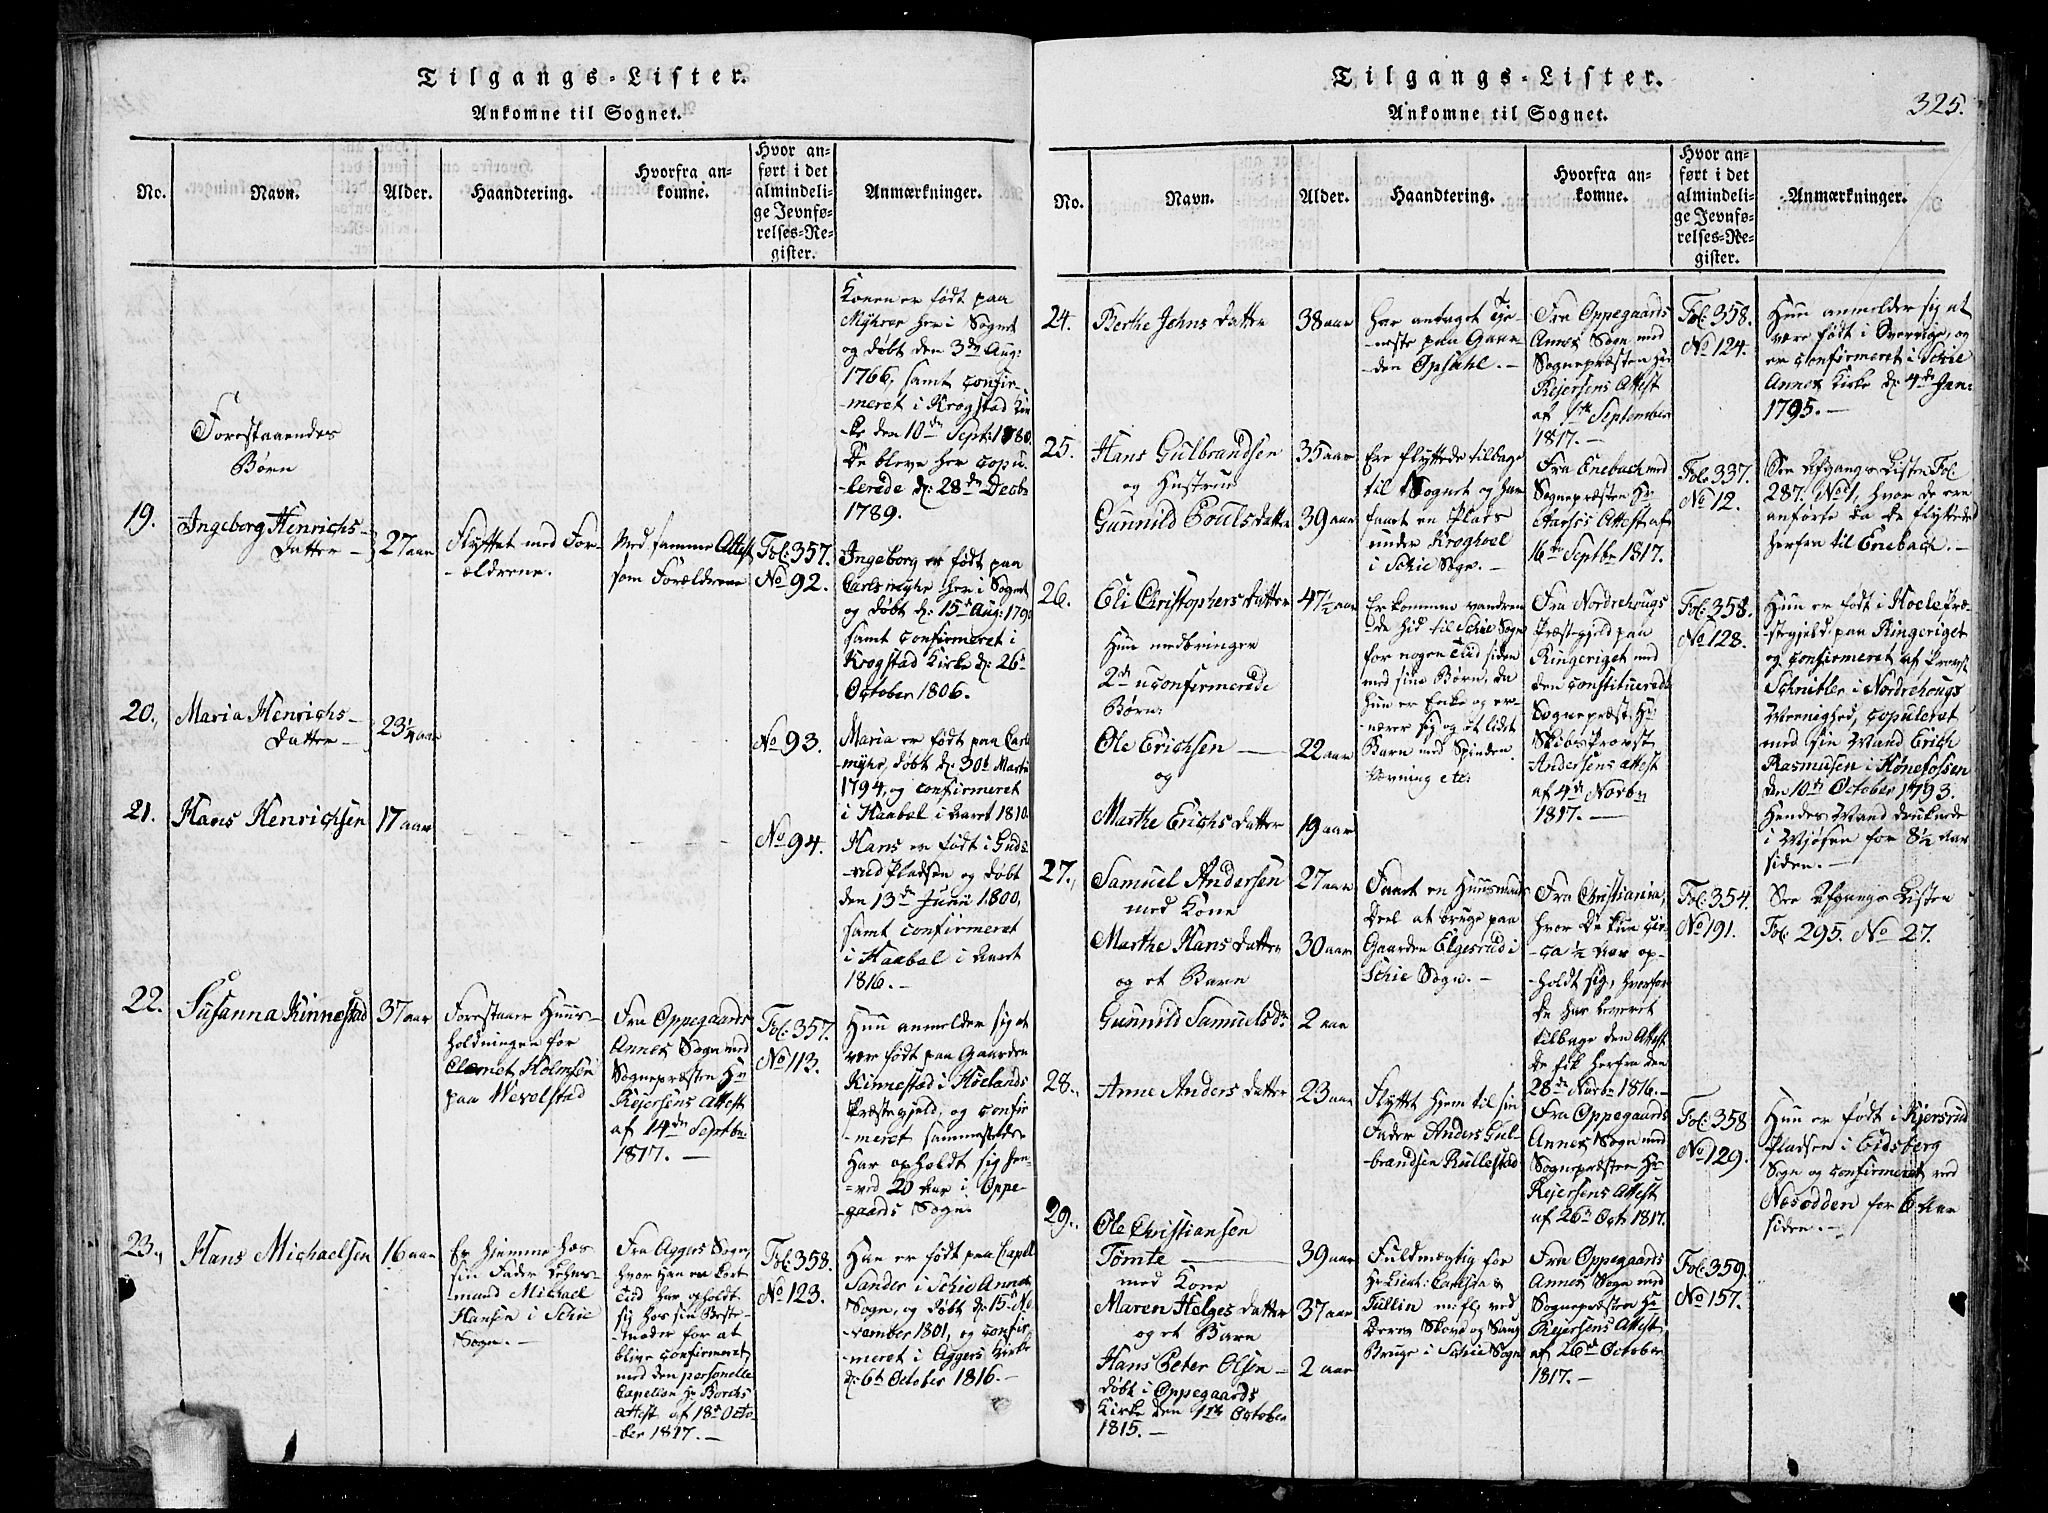 Tilgangs-Lister.
Ankomne til Sognet.
No.
Navn.
Alder.
Haandtering.
Hvorfra an-
komne.
Hvor an-
ført i det
almindeli-
ge Jevnfø-
relses-Re-
gister.
Anmærkninger.
Konen er født paa
Myhrer her i Sognet
og døbt den 3die Aug:
1766, samt confir-
-meret i Krogstad Kir
-ke den 10de Sept: 1780.
De bleve her copu-
lerede d: 28de Decbr
1789.
Forestaaendes
Børn
19.
Ingeborg Henrichs-
Datter -
27 aar
Flyttet med For-
-ældrene.
Med samme Attest
som Forældrene
Fol: 357.
No 92.
Ingeborg er født paa
Carlsmyhr her i Sognet
og døbt d: 15de Aug: 1790
samt confirmeret i
Krogstad Kirke d: 26de
October 1806.
20.
Maria Henrichs-
Datter -
23 1/4 aar
No 93.
Maria er født paa Carls
-myhr, døbt d: 30te Martii
1794, og confirmeret
i Haabøl i Aaret 1810.
21.
Hans Henrichsen
17 aar
No 94.
Hans er født i Guds-
-rud Pladsen og døbt
den 13de Junii 1800,
samt confirmeret
i Haabøl i Aaret
1816. -
22.
Susanna Kinnestad
37 aar
Forestaaer Huus-
holdningen for
Clemet Holmsen
paa Wevelstad
Fra Oppegaards
Annex Sogn med
Sognepræsten Hr
Rejersens Attest
af 14de Septbr
1817. -
Fol: 357.
No 113.
Hun anmelder sig at
vær født paa Gaarden
Kinnestad i Hølands
Præstegjeld, og confir
-meret sammesteds
Har opholdt sig hen-
=ved 20 Aar i Oppe-
gaards Sogn.
23.
Hans Michaelsen
16 aar
Er hjemme hos
sin Fader Lehns-
mand Michael
Hansen i Schie
Sogn. -
Fra Aggers Sogn,
hvor Han en kort
Tid har opholdt
sig hos sin Beste-
moder for at
blive confirmeret,
med den personelle
Capellan Hr Borchs
Attest af 18de Octo-
ber 1817. -
Fol: 358.
No 123.
Han er født paa Capel
Sander i Schie Annex
Sogn, og døbt d: 15de No
-vember 1801, og confir
-meret i Aggers Kirke
d: 6te October 1816. -
Tilgangs-Lister.
Ankomne til Sognet.
325.
No.
Navn.
Alder.
Haandtering.
Hvorfra an-
komne.
Hvor an-
ført i det
almindeli-
ge Jevnfø-
relses-Re-
gister.
Anmærkninger.
24.
Berthe Johns Datter
38 aar
Har antaget Tje-
neste paa Gaar-
den Opsahl. -
Fra Oppegaards
Annex Sogn med
Sognepræsten Hr
Rejersens Attest
af 1ste September
1817. -
Fol: 358.
No 124.
Hun anmelder sig at
være født i Sverrige, og
er confirmeret i Schie
Annex Kirke d: 4de Jan:
1795. -
25.
Hans Gulbrandsen
og Hustrue
Gunnild Pouls Datter
35 aar
39 aar
Ere flyttede tilbage
til Sognet og har
faaet en Plads
under Kroghoel
i Schie Sogn. -
Fra Enebach med
Sognepræsten Hr
Attest af
16de Septbr 1817.
Fol: 337.
No 12.
See Afgangs Listen Fol:
287. No 1, hvor de ere
anførte da de flyttede
herfra til Enebach. -
26.
Eli Christophers Datter
47 1/2 aar
Hun medbringer
2de uconfirmerede
Børn:
Ole Erichsen -
22 aar
og
Marthe Erichs Datter
19 aar
Er kommen vandren
-de hid til Schie Sogn
for nogen Tid siden
med sine Børn, da
hun er Enke og er-
nærer sig og et lidet
Barn med Spinden
Vævning etc:
Fra Nordrehougs
Præstegjeld paa
Ringeriget med
den constituerede
Sognepræst Hr
Skibs Provst
Andersens Attest
af 4de Novbr
1817. -
Fol: 358.
No 128.
Hun er født i Hoele Præ
-stegjeld paa Ringeriget
og confirmeret af Provst
Schnitler i Nordrehougs
Menighed, copuleret
med sin Mand Erich
Rasmusen i Hønefossen
den 10de October 1793.
Hendes Mand druknede
i Mjøsen for 8 1/2 Aar
siden. -
27.
Samuel Andersen
med Kone
Marthe Hans Datter
og et Barn
Gunnild Samuelsdr
27 aar
30 aar
2 aar
Faaet en Huusmands
Deel at bruge paa
Gaarden Elgesrud i
Schie Sogn. -
Fra Christiania,
hvor De kun cir-
-ca 1/2 Aar op-
-holdt sig, hvorfor
De har leveret
tilbage den Attest
De fik herfra den
28de Novbr 1816. -
Fol: 354.
No 191.
See Afgangs Listen
Fol: 295. No 27.
28.
Anne Anders Datter
23 aar
Flyttet hjem til sin
Fader Anders Gul-
brandsen Rullestad
Fra Oppegaards
Annex Sogn med
Sognepræsten Hr
Rejersens Attest
af 26de Oct: 1817.
Fol: 358
No 129.
Hun er født i Kjersrud
Pladsen i Eidsberg
Sogn og confirmeret ved
Nesodden for 6 Aar
siden. -
29.
Ole Christiansen
Tømte -
39 aar
med Kone
Maren Helges Datter
37 aar
og et Barn
Hans Peter Olsen -
2 aar
døbt i Oppegaards
Kirke den 1ste October
1815. -
Fuldmægtig for
Hr Lieut:
Tullin m: fl: ved
Deres Skov og Saug
Bruge i Schie Sogn
Fra Oppegaards
Annex Sogn med
Sognepræsten Hr
Rejersens Attest
af 26de October
1817. -
Fol: 359.
No 157.